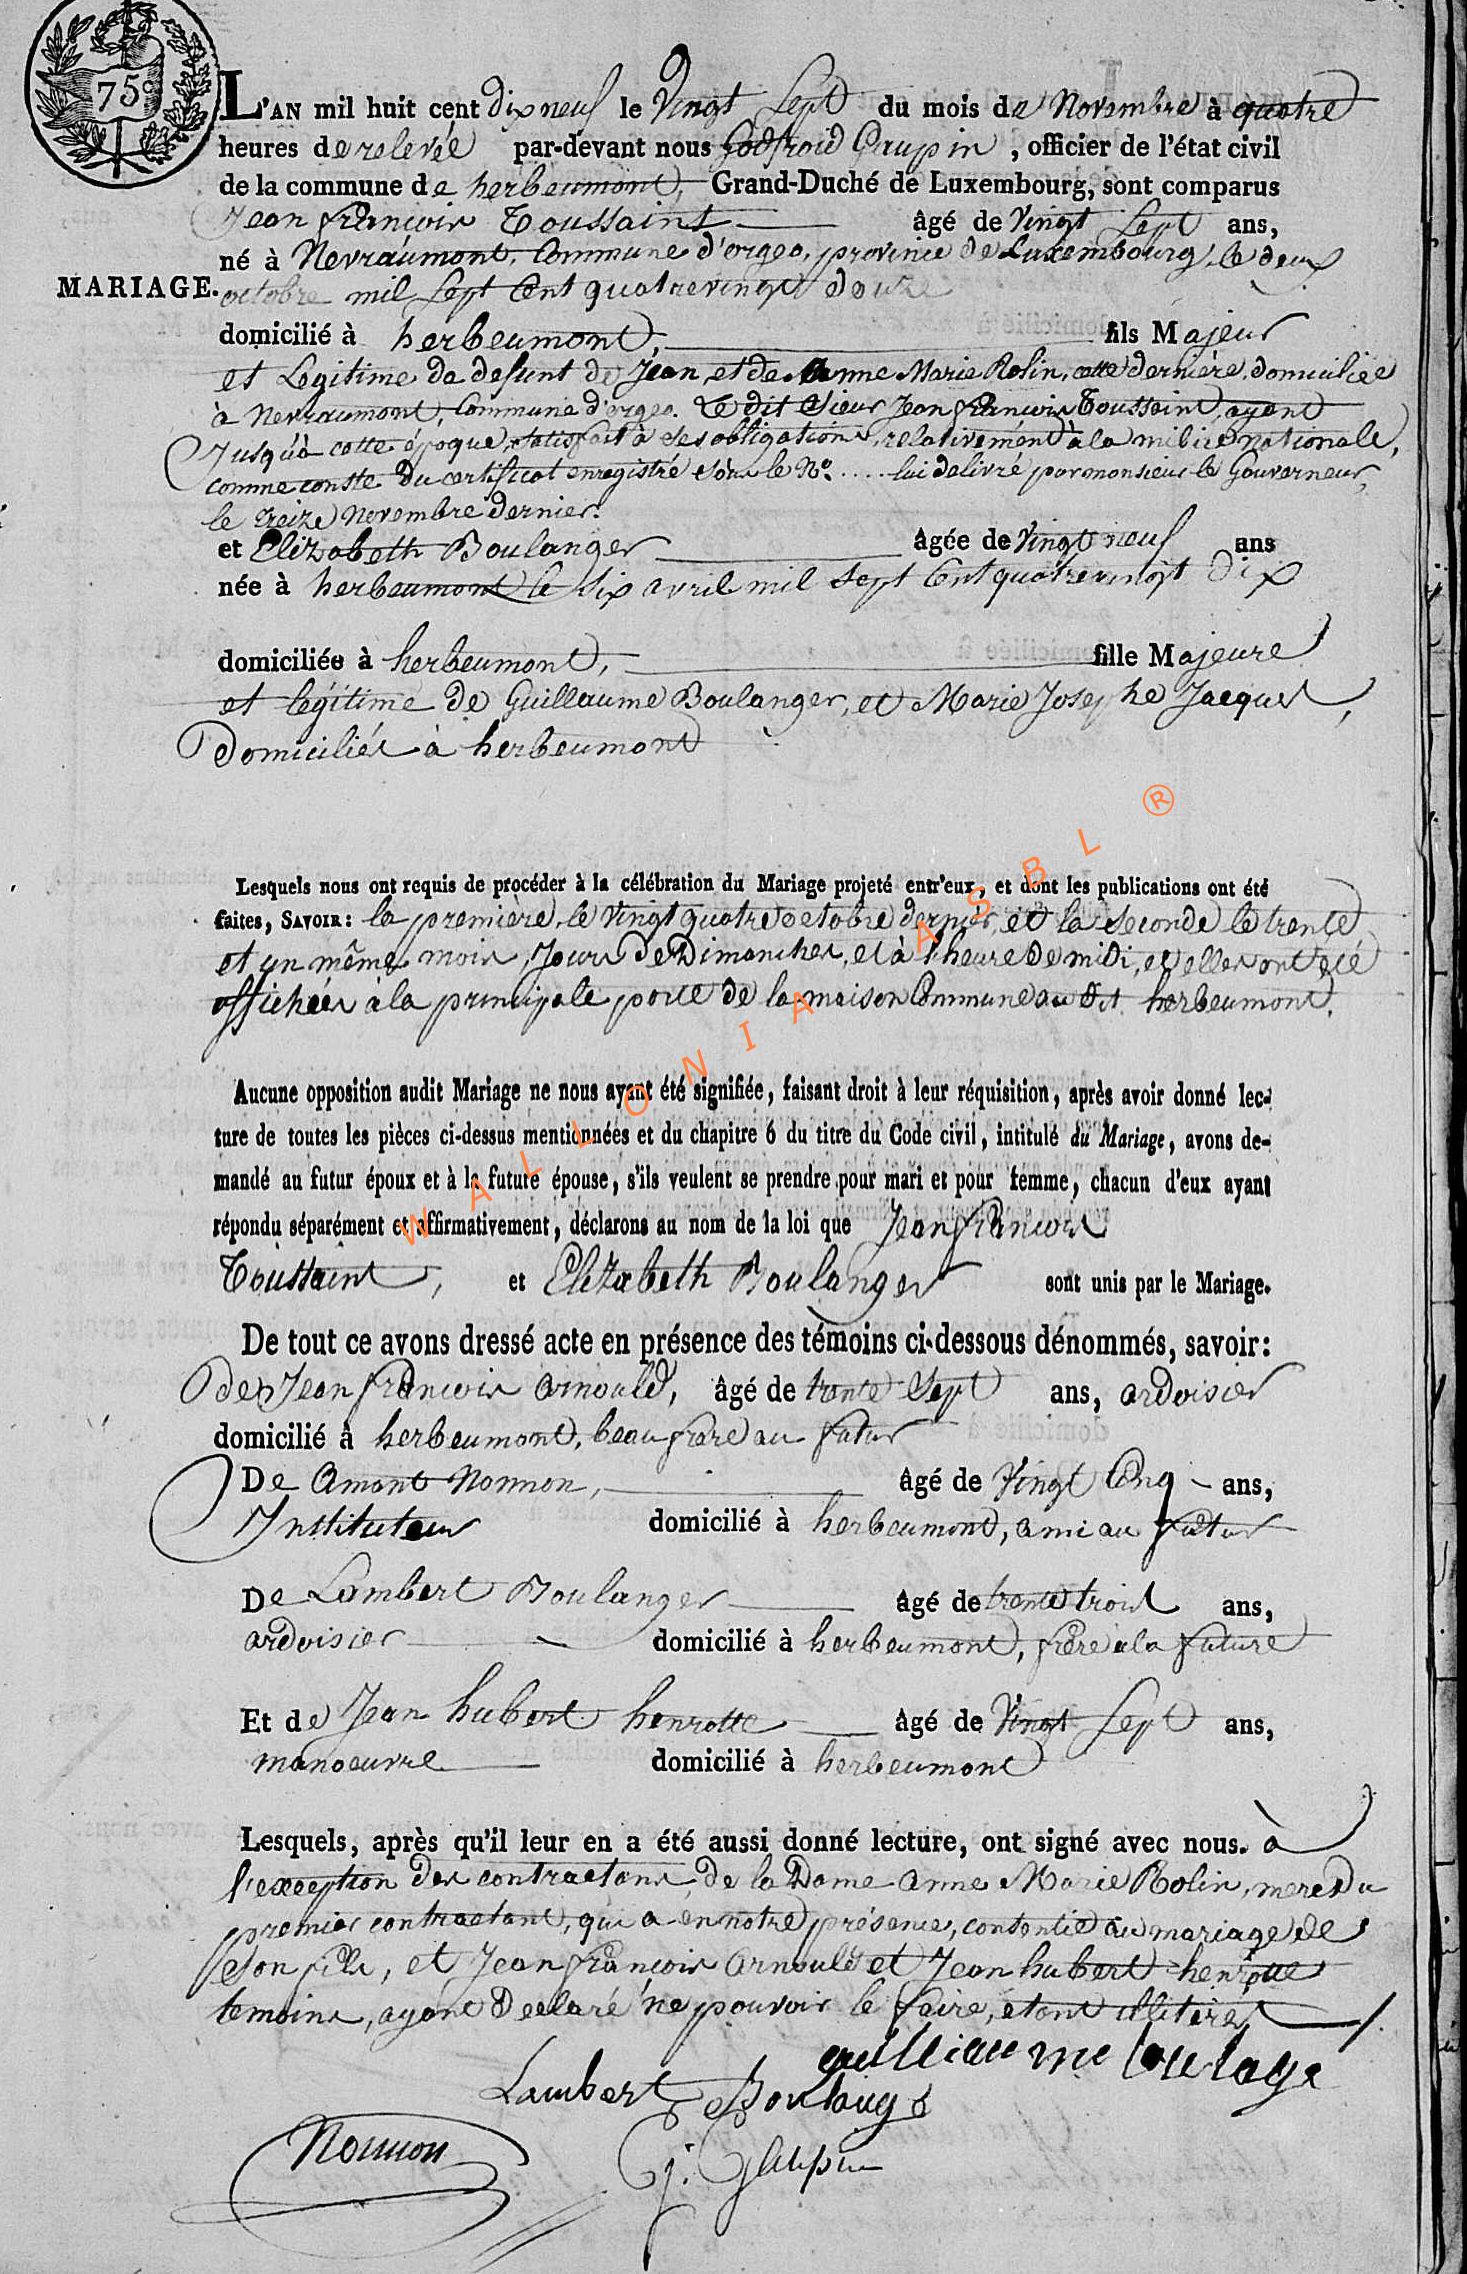 75c
L'AN mil huit cent dix neuf le Vingt Sept du mois de Novembre à quatre
heures de relevée par-devant nous Godfroid Gaupin, officier de l'état civil
de la commune de herbeumont, Grand-Duché de Luxembourg, sont comparus
Jean françois Toussaint âgé de Vingt Sept ans,
né à Nevraumont, Commune d'orgeo, province de Luxembourg, le deux
MARIAGE.
octobre mil Sept Cent quatrevingt douze
domicilié à herbeumont, fils Majeur
et Legitime de defunt de Jean, et de Anne Marie Rolin, cette dernière, domiciliée
à Nevraumont, Commune d'orgeo. Le dit Sieur Jean françois Toussaint, ayant
Jusqu'à cette époque, satisfait à ses obligations, relativement à la milice nationale,
comme conste du certificat enregistré sous le No. .... lui delivré par monsieur le Gouverneur,
le treize Novembre dernier.
et Elizabeth Boulanger âgée de Vingt neuf ans
née à herbeumont le Six avril mil Sept Cent quatrevingt dix
domiciliée à herbeumont, fille Majeure
et légitime de Guillaume Boulanger, et Marie Josephe Jacques,
Domiciliés à herbeumont
Lesquels nous ont requis de procéder à la célébration du Mariage projeté entr'eux, et dont les publications ont été
faites, SAVOIR: la première, le Vingt quatre octobre dernier, et la Seconde le trente
et un même mois, Jours de Dimanches, et à l'heure de midi, et elles ont été
affichées à la principale porte de la maison Commune au dit herbeumont.
Aucune opposition audit Mariage ne nous ayant été signifiée, faisant droit à leur réquisition, après avoir donné lec-
ture de toutes les pièces ci-dessus mentionnées et du chapitre 6 du titre du Code civil, intitulé du Mariage, avons de-
mandé au futur époux et à la future épouse, s'ils veulent se prendre pour mari et pour femme, chacun d'eux ayant
répondu séparément et affirmativement, déclarons au nom de la loi que Jean françois
Toussaint, et Elizabeth Boulanger sont unis par le Mariage.
De tout ce avons dressé acte en présence des témoins ci-dessous dénommés, savoir:
de Jean françois Arnould, âgé de trente Sept ans, ardoisier
domicilié à herbeumont, beau frere au futur
De Amant Nonnon, âgé de Vingt Cinq ans,
Instituteur domicilié à herbeumont, ami au futur
De Lambert Boulanger âgé de trente trois ans,
ardoisier domicilié à herbeumont, frère a la future
Et de Jean hubert henrotte âgé de Vingt Sept ans,
manoeuvre domicilié à herbeumont
Lesquels, après qu'il leur en a été aussi donné lecture, ont signé avec nous. à
l'exception des contractans, de la Dame Anne Marie Rolin, mere du
premier contractant, qui a en notre présence, contentie au mariage de
Son fils, et Jean françois Arnould et Jean hubert henrotte
temoins, ayant Declaré ne pouvoir le faire, étant illitérés
Lambert Boulange
Nonnon
g. Gaupin
WALLONIA ASBL ®